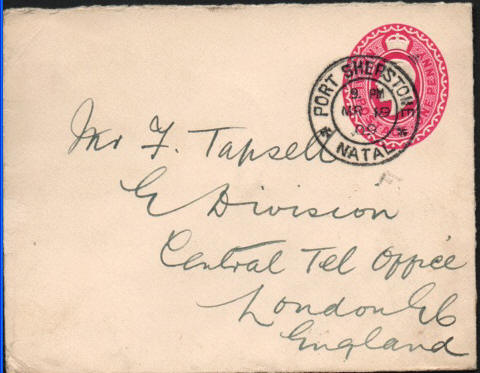 PORT SHEPSTONE
9. PM
MR 19
09
NATAL
ONE PENNY
Mr F. Tapsell
G Division
Central Tel Office
London E C
England